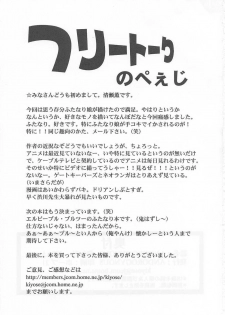 フリートーク
のぺぇじ
☆みなさんどうも初めまして。清瀬薫です。
今回は思う存分ふたなり娘が描けたので満足。やはりというか
なんというか、好きなモノを描いてなんぼだなと今回痛感しました。
ふたなり、好きです。特にふたなり娘が手コキでイかされるのが！
特に！！同じ趣向のかた、メール下さい。(笑)
作者の近況なぞどうでもいいでしょうが、ちょろっと。
アニメは最近見ていないなー、いや特に見ているというのが無いだけ
で、ケーブルテレビと契約しているのでアニメは毎日見れるわけです。
そのせいかいざビデオに撮ってまで！！見るぜ！！！！というのが
ない…。ゲートキーパーズとネオランがとりあえず見ている。
(いまさらだが)
漫画はあいかわらずバキ、エアマスターしぶとすぎ。
早く渋川先生大暴れが見たいもんです。
次の本はもう決まっています。(笑)
エルピープル・プルツーのふたなり本。(俺はずし〜)
仕方ないじゃない、はまったんだから。
あぁ〜あぁ〜プルーと言う人から(俺やんけ)懐かしーという人まで
期待して下さい。
最後に、本を買って下さった皆様、ありがとうございました。
ご意見、ご感想などは
http://members.jcom.home.ne.jp/kiyose/
kiyose@jcom.home.ne.jp
までお願いします。